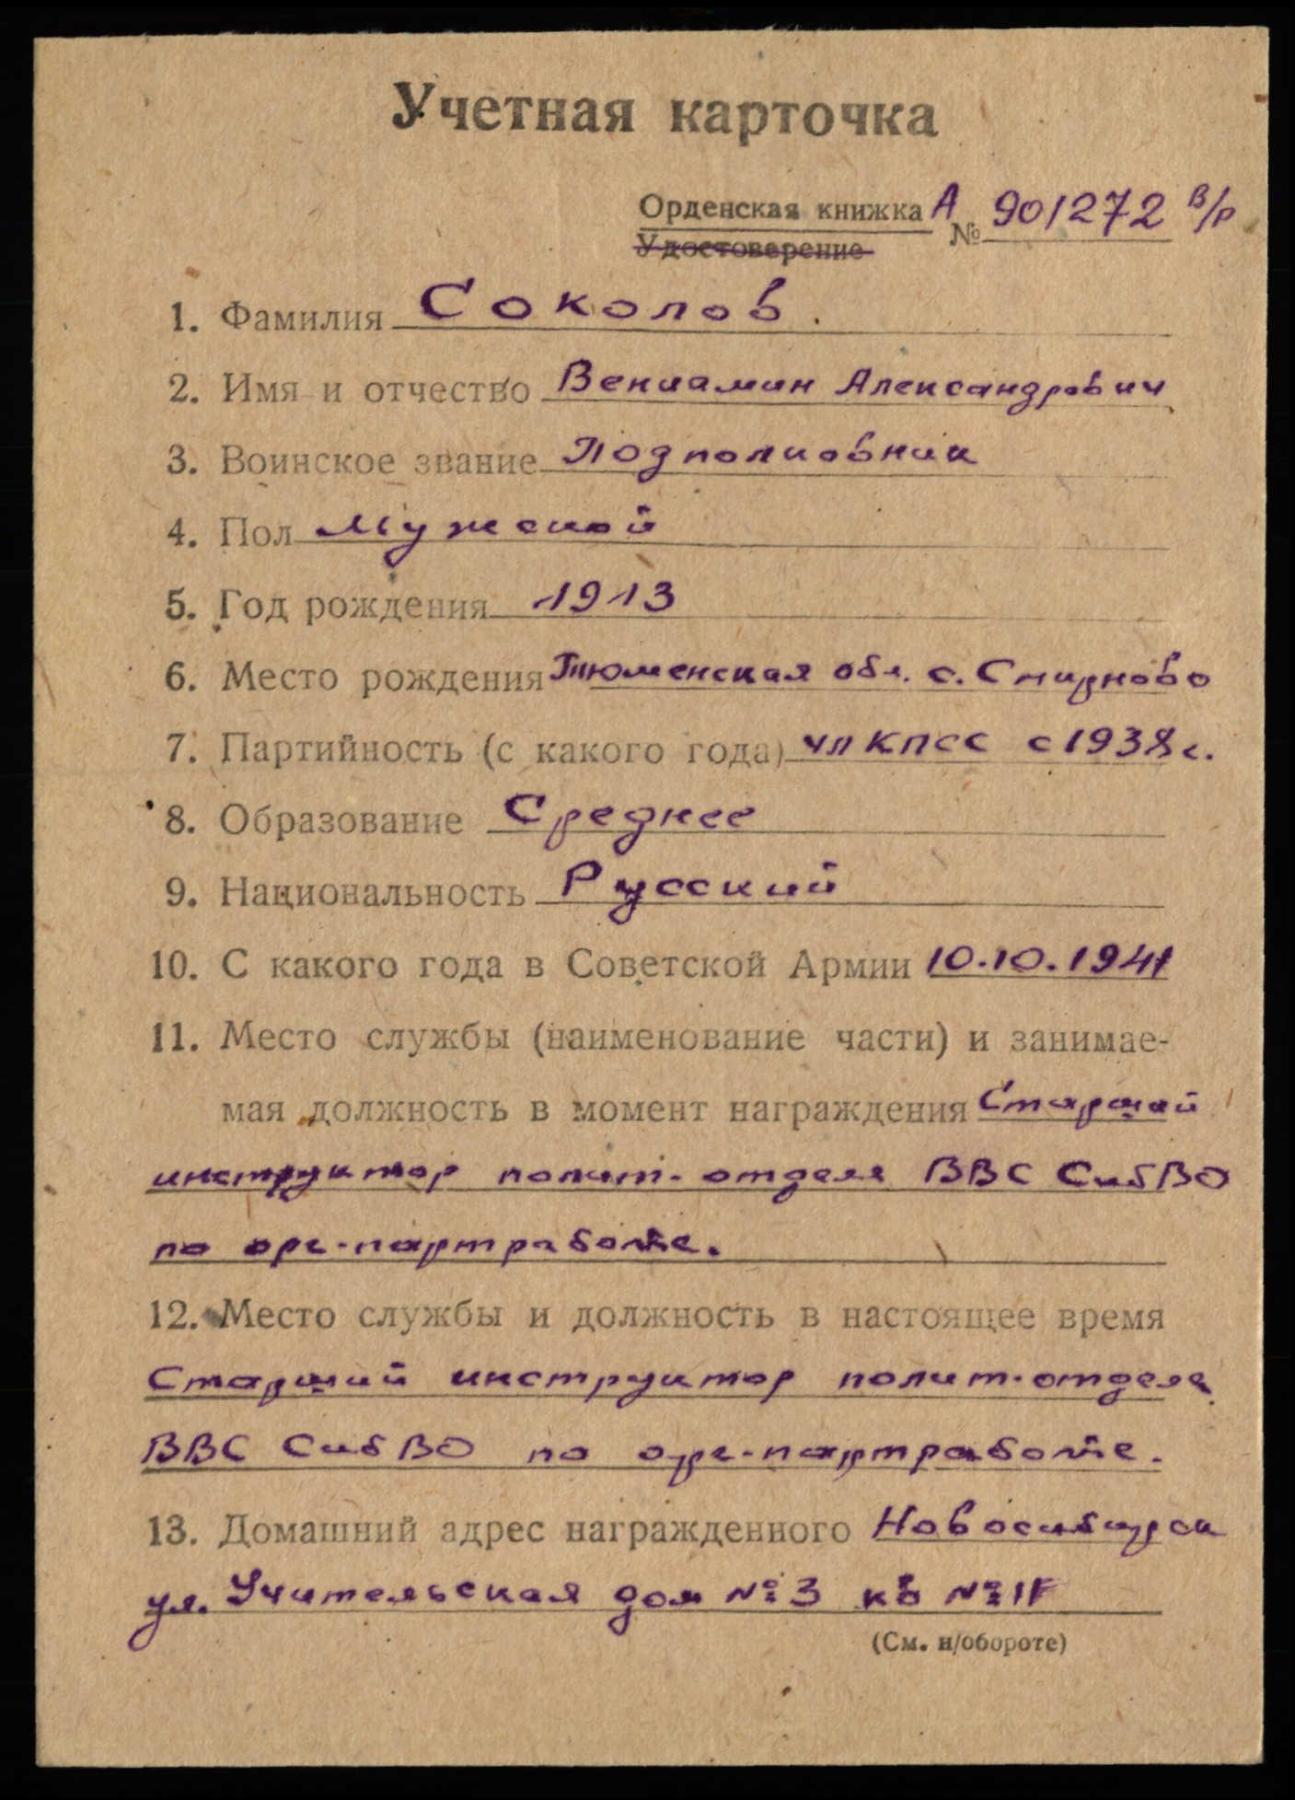 Учетная карточка
Орденская книжка А № 901272 в/р
Удостоверение
1. Фамилия Соколов.
2. Имя и отчество Вениамин Александрович
3. Воинское звание Подполковник
4. Пол Мужской
5. Год рождения 1913
6. Место рождения Тюменская обл. с. Смирново
7. Партийность (с какого года) чл КПСС с 1938 г.
8. Образование Среднее
9. Национальность Русский
10. С какого года в Советской Армии 10.10.1941
11. Место службы (наименование части) и занимае-
мая должность в момент награждения Старший
инструктор полит-отдела ВВС СибВО
по орг-партработе.
12. Место службы и должность в настоящее время
Старший инструктор полит-отдела
ВВС СибВО по орг-партработе.
13. Домашний адрес награжденного Новосибирск
ул. Учительская дом № 3 кв №
(См. н/обороте)